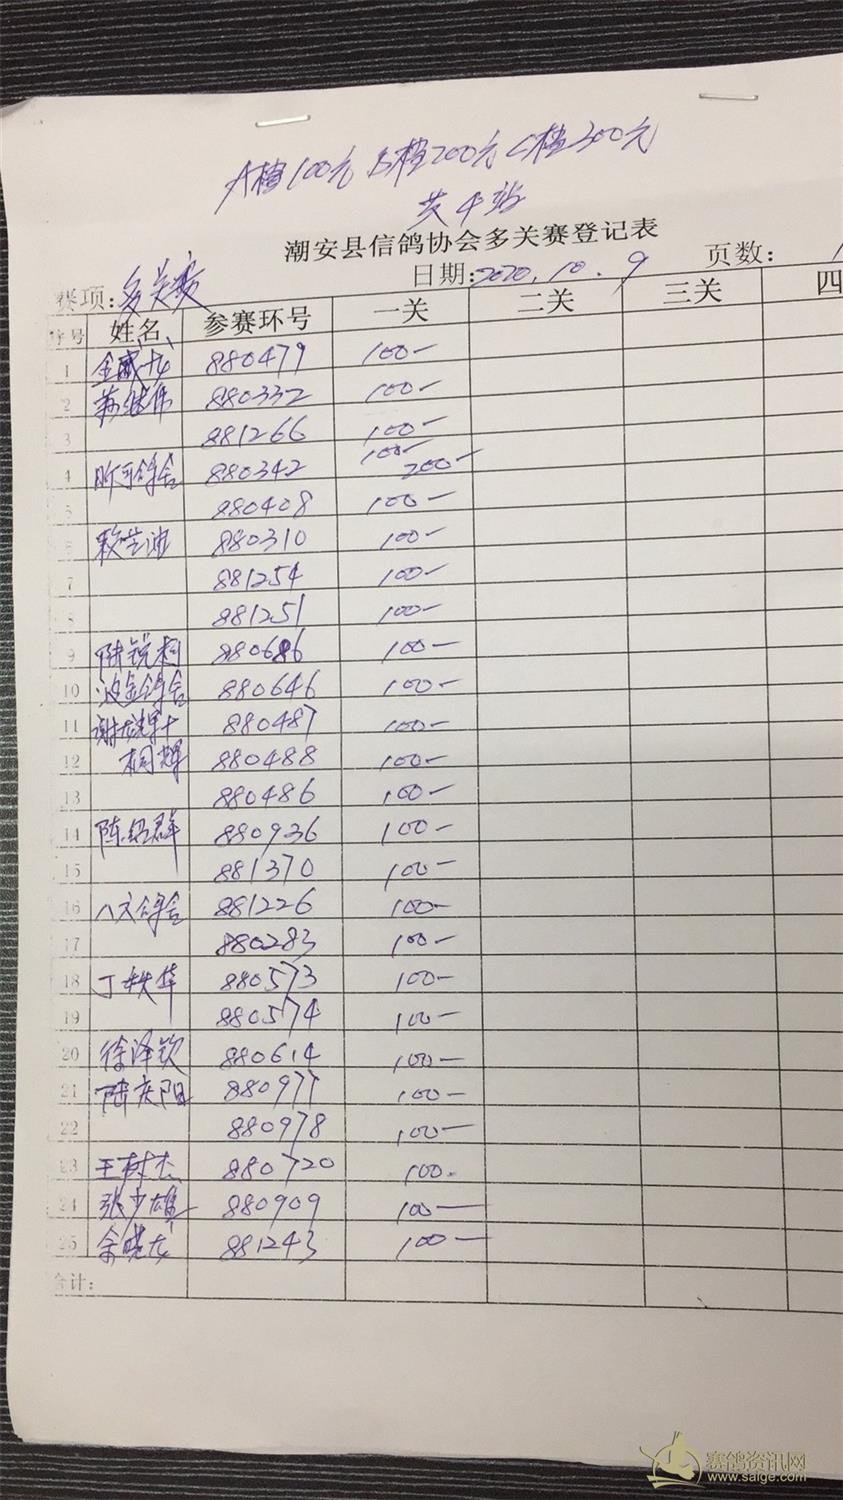 A档100元 B档200元 C档300元
共4站
潮安县信鸽协会多关赛登记表
赛项:多关赛 日期:2020.10.9 页数: 1
序号 姓名 参赛环号 一关 二关 三关 四
1 880479 100-
2 880332 100-
3 881266 100-
4 880342 100- 200-
5 880408 100-
6 880310 100-
7 881254 100-
8 881251 100-
9 陆锐桐 880686 100-
10 波金鸽舍 880646 100-
11 880487 100-
12 桐辉 880488 100-
13 880486 100-
14 陈绍群 880936 100-
15 881370 100-
16 八方鸽舍 881226 100-
17 880283 100-
18 丁轶华 880573 100-
19 880574 100-
20 徐泽钦 880614 100-
21 陆庆阳 880977 100-
22 880978 100-
23 王树杰 880720 100-
24 张少雄 880909 100-
25 余晓龙 881243 100-
合计:
赛鸽资讯网
www.saige.com